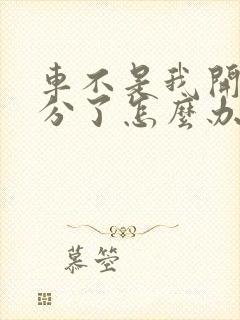 車不是我開
分了怎麼办
慕箜